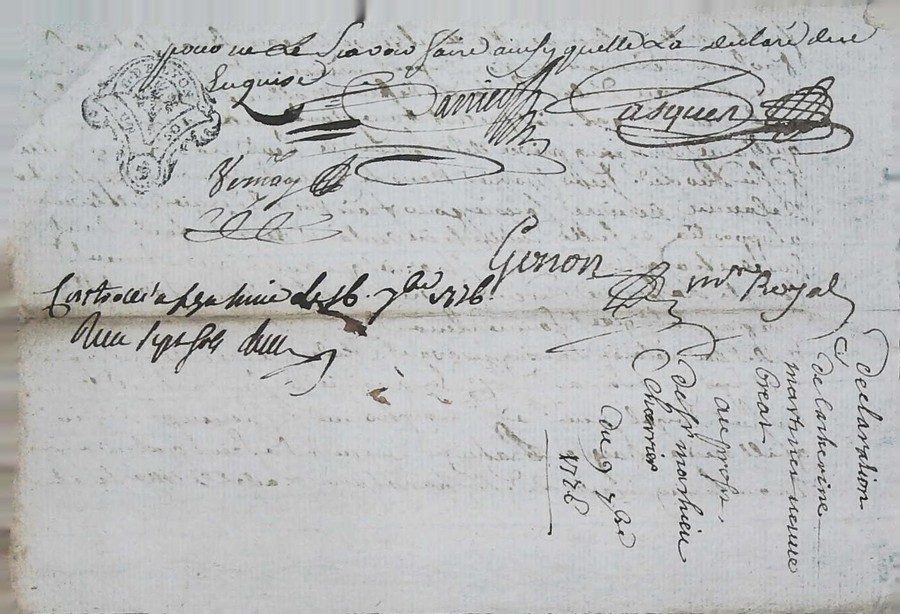 pour ne le Scavoir faire ainsy quelle la declaré duë
Enquise
Darrier Pasquer
Vernay
Genon
nre Royal
Controllé a le 16 7bre 1776
Reçu sept sols
declaration
de catherine
martinet veuve
breat
au profit
de sr mathieu
Charrier
du 9 7bre
1776